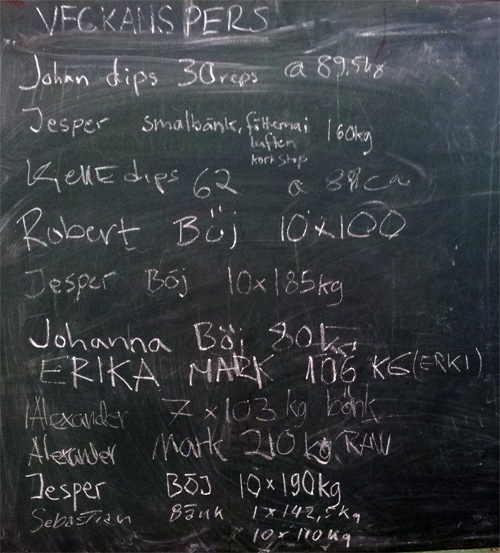 VECKANS PERS
Johan dips 30 reps a 89,5kg
Jesper smalbänk, fötterna i 160kg
luften
kort stop
KjellE dips 62 a 89 ca
Robert Böj 10x100
Jesper Böj 10x185kg
Johanna Böj 80kg
ERIKA MARK 106 KG (ERKI)
Alexander 7x103 kg bänk
Alexander Mark 210 kg RAW
Jesper BÖJ 10x190kg
Sebastian Bänk 1x142,5kg
10x110kg